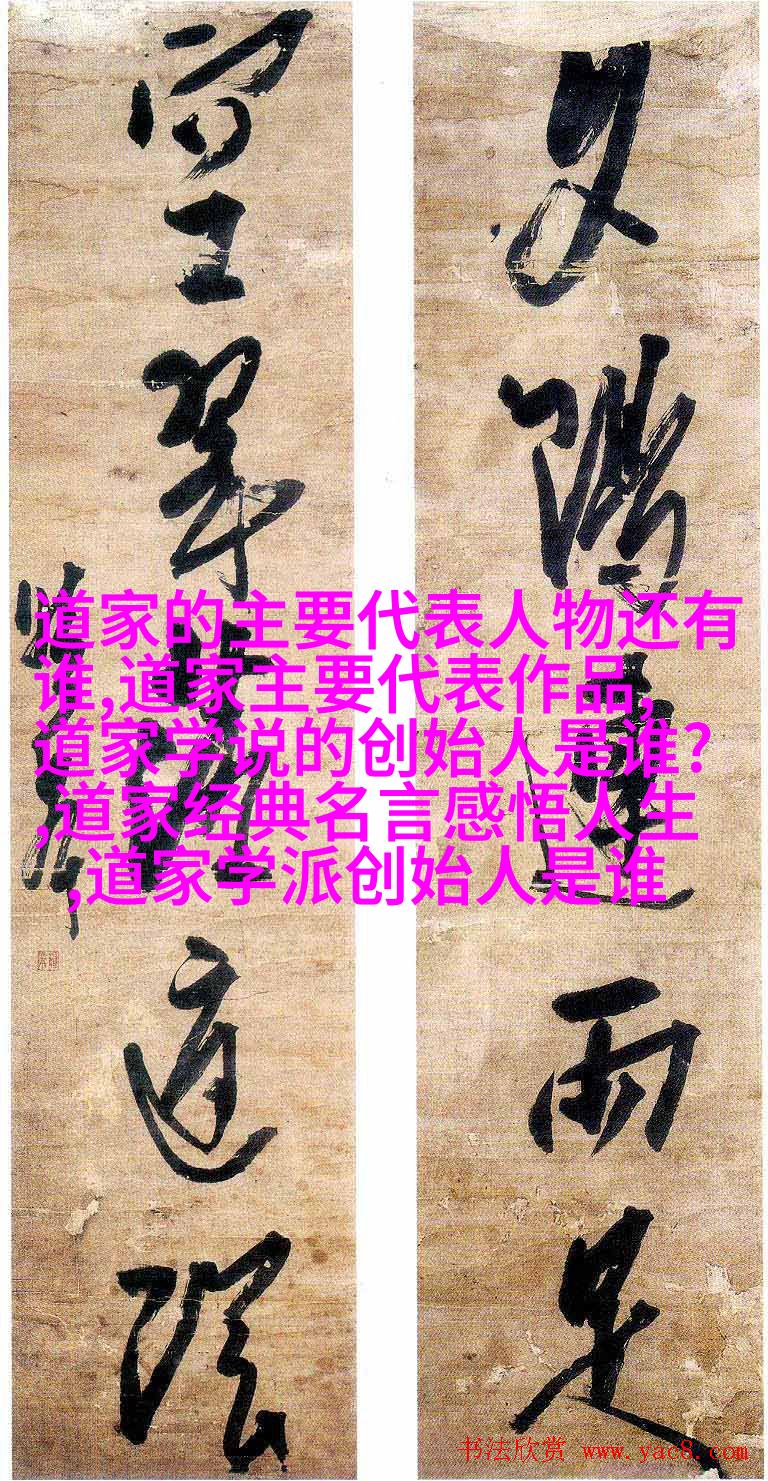 夕陽連雨足
空翠落庭陰
道家的主要代表人物还有
谁,道家主要代表作品,
道家学说的创始人是谁?
,道家经典名言感悟人生
,道家学派创始人是谁
书法欣赏 www.yac8.com